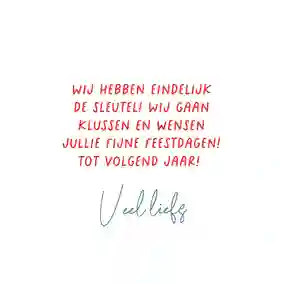 WIJ HEBBEN EINDELIJK
DE SLEUTEL! WIJ GAAN
KLUSSEN EN WENSEN
JULLIE FIJNE FEESTDAGEN!
TOT VOLGEND JAAR!
Veel liefs